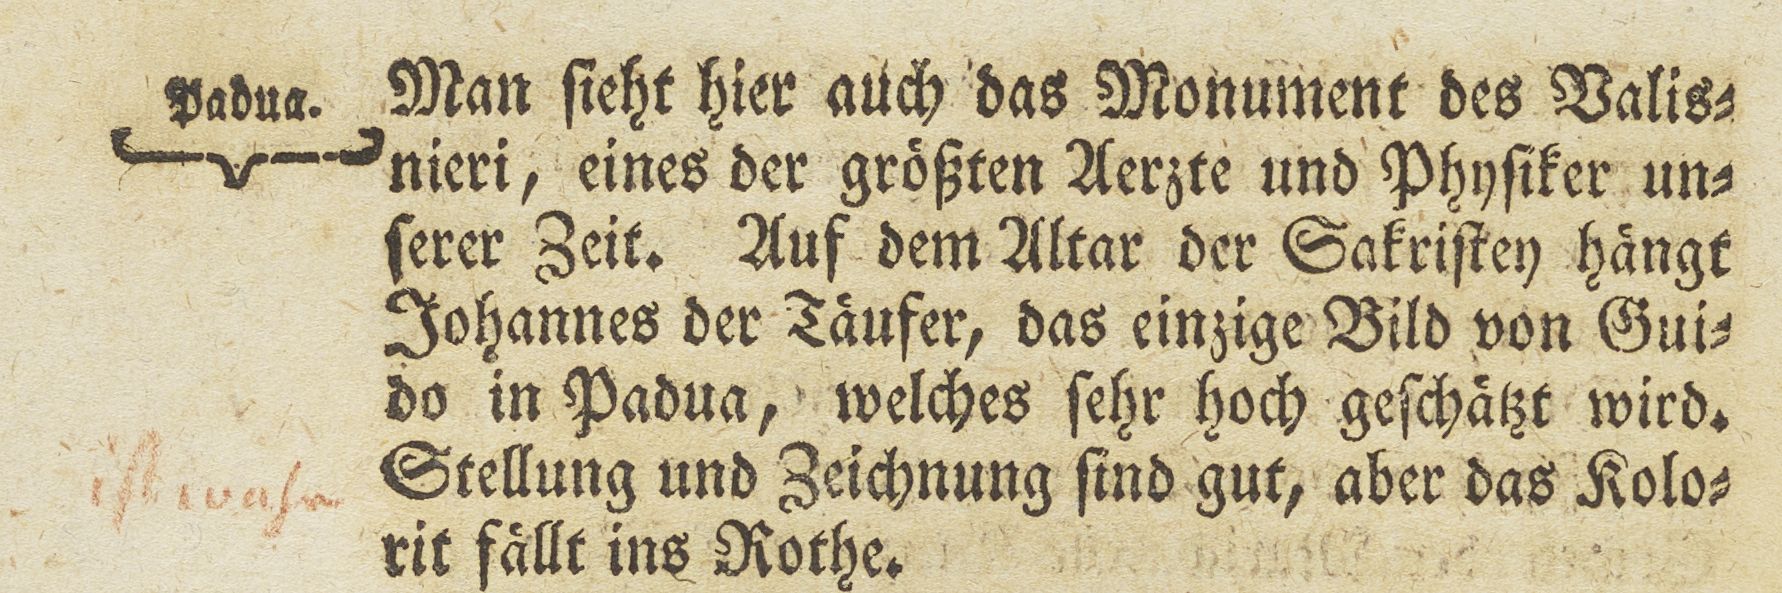 Padua.
Man sieht hier auch das Monument des Valis-
nieri, eines der größten Aerzte und Physiker un-
serer Zeit. Auf dem Altar der Sakristey hängt
Johannes der Täufer, das einzige Bild von Gui-
do in Padua, welches sehr hoch geschätzt wird.
ist wahr
Stellung und Zeichnung sind gut, aber das Kolo-
rit fällt ins Rothe.